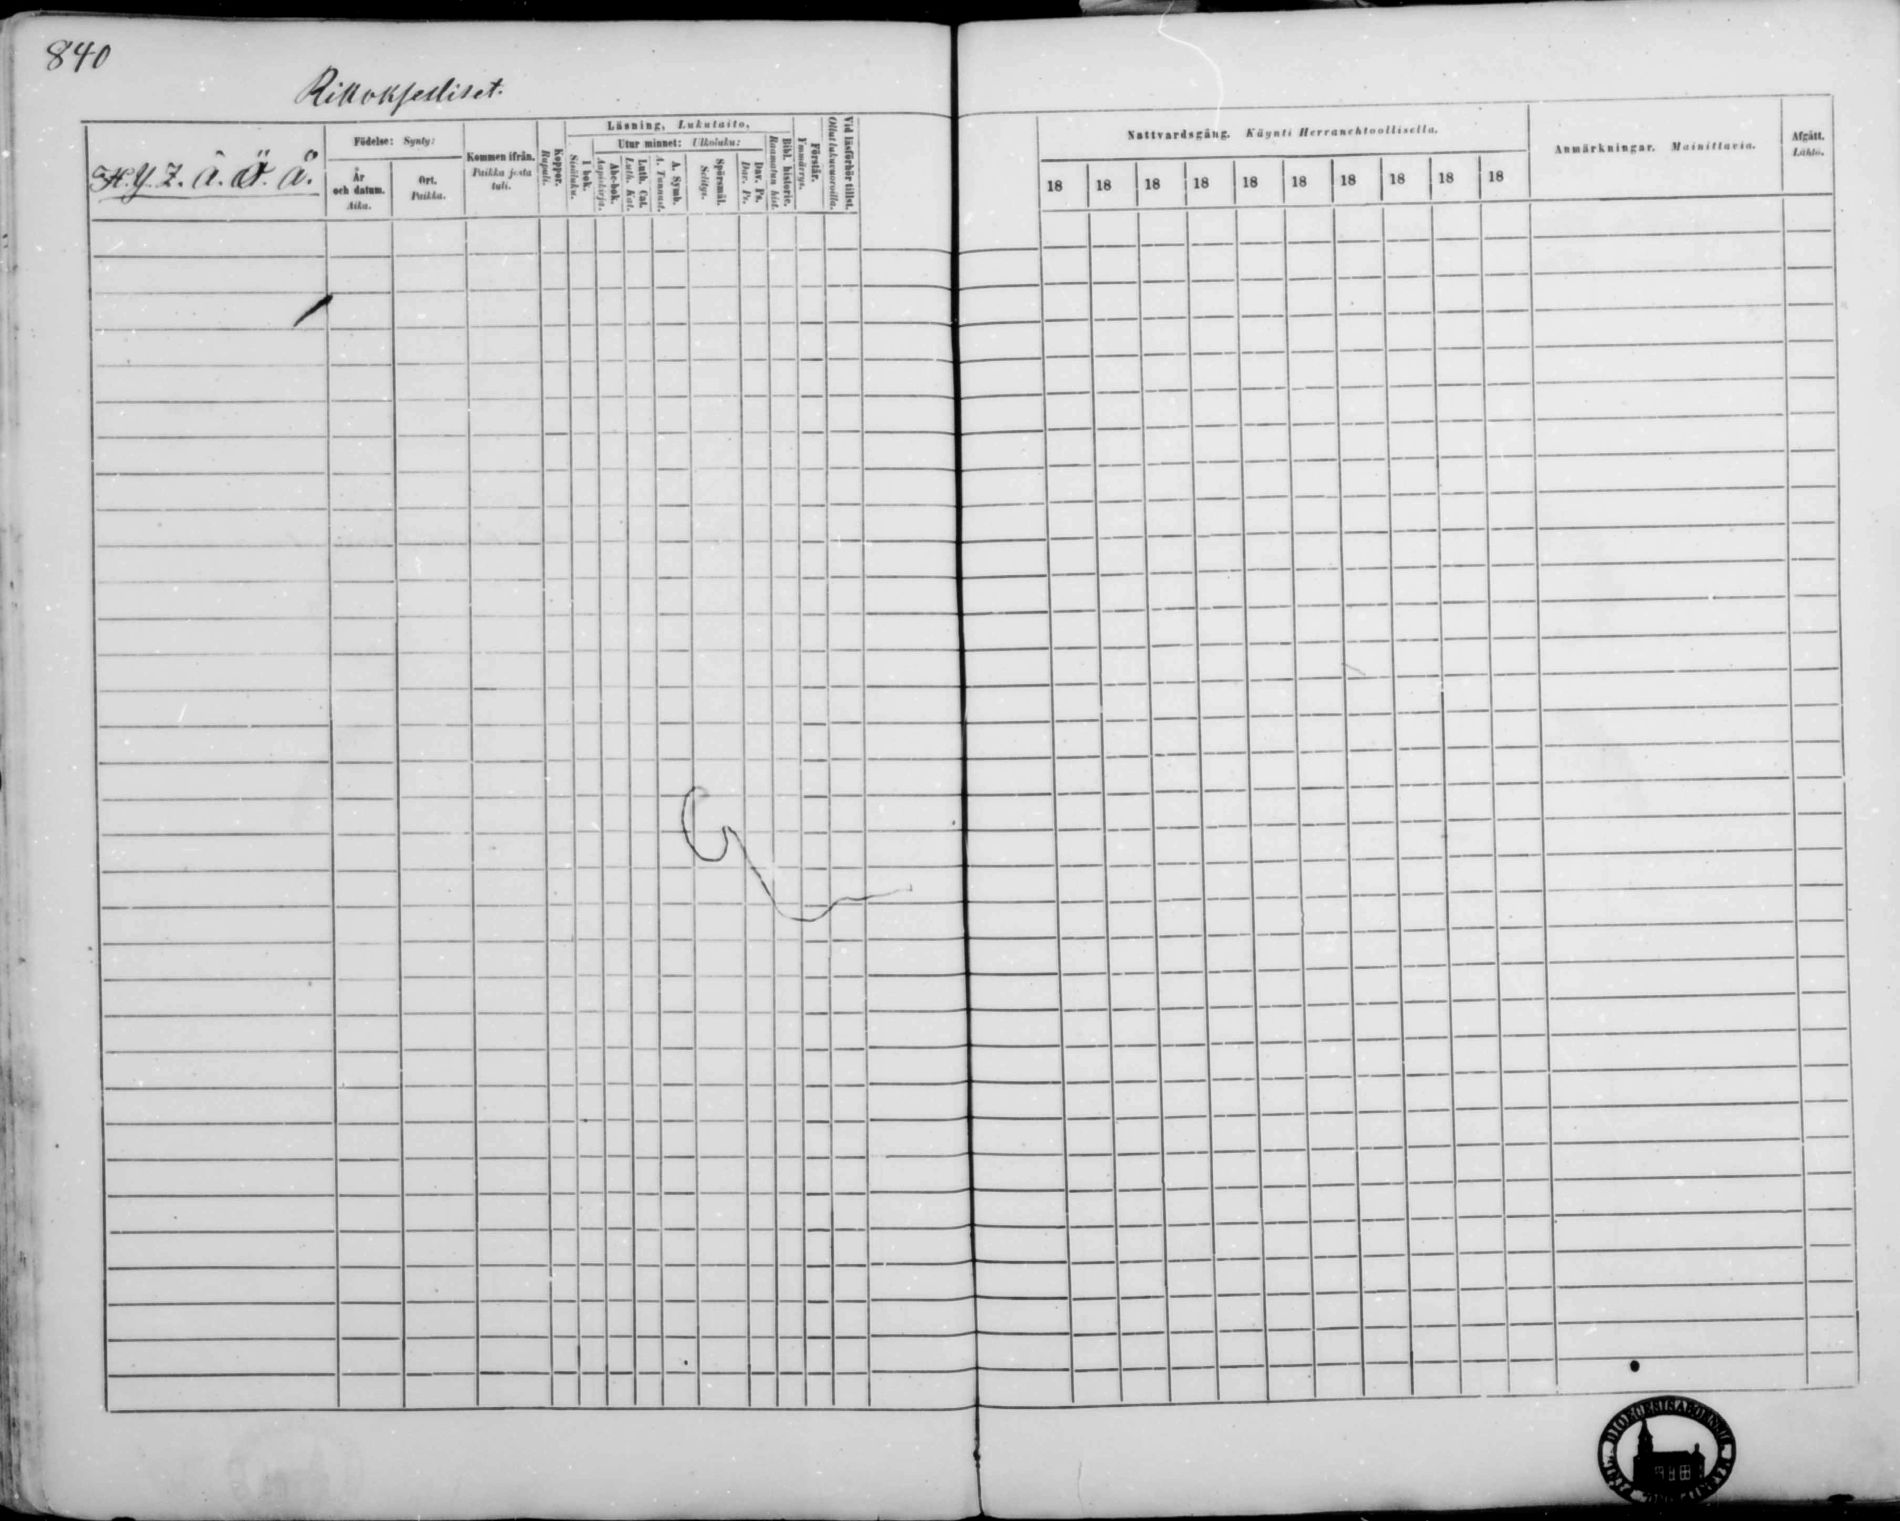 840
Rikoksesliset.
Ÿ. Z. Å. Ä. Ö.
Födelse: Synty:
År och datum. Aika.
Ort. Paikka.
Kommen ifrån. Paikka josta tuli.
Koppor. Rupuli.
Läsning, Lukutaito,
I bok. Sisäluku.
Utur minnet: Ulkoluku:
Abc-bok. Aapiskirja.
Luth. Cat. Luth. Kat.
A. Symb. A. Tunnust.
Spörsmål. Selitys.
Dav. Ps. Dav. Ps.
Bibl. historie. Raamatun hist.
Förstår. Ymmärrys.
Vid läsförhör tillst. Ollut lukuvuoroilla.
Nattvardsgång. Käynti Herranehtoollisella.
18 18 18 18 18 18 18 18 18 18
Anmärkningar. Mainittavia.
Afgått. Lähtö.